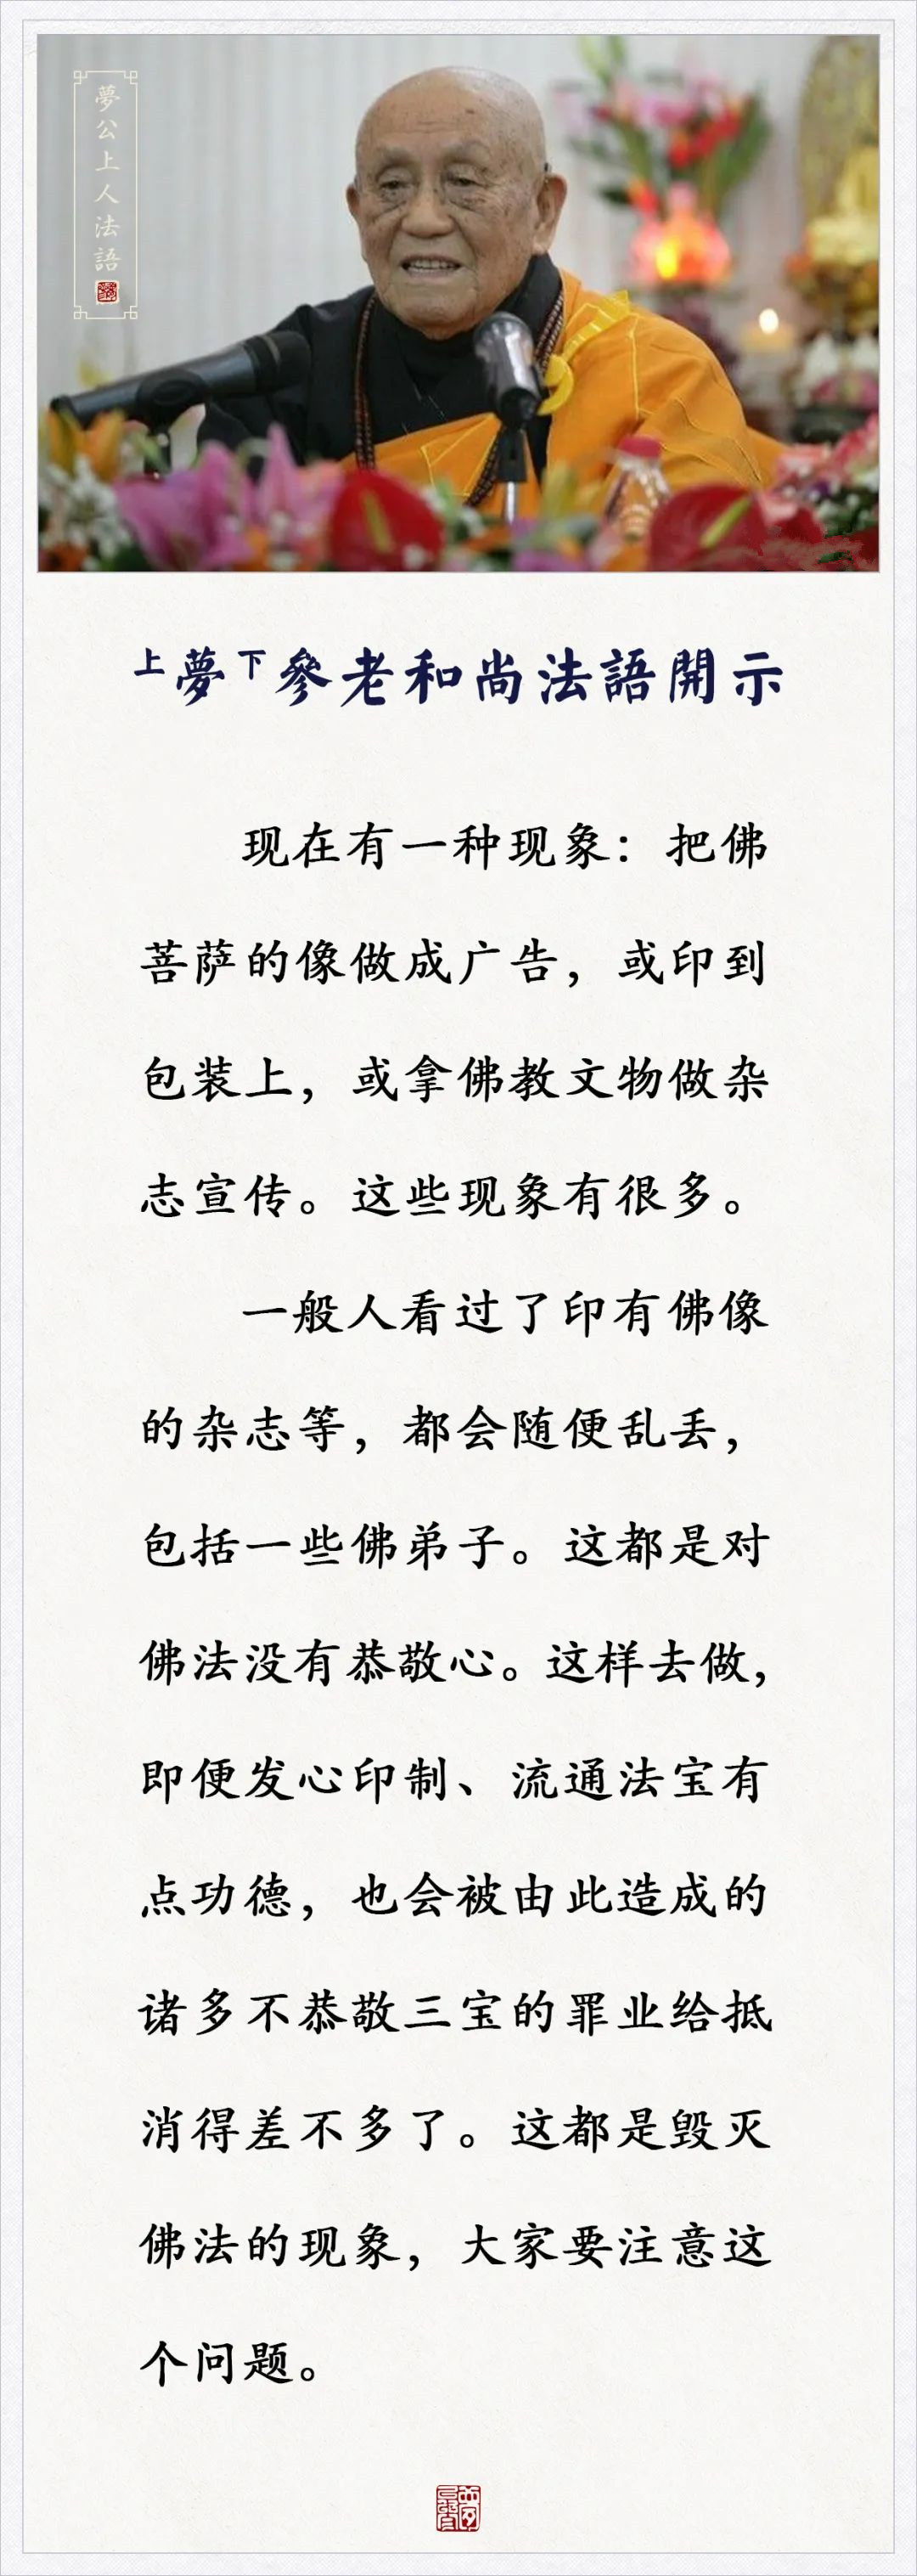 夢公上人法語
上夢下參老和尚法語開示
现在有一种现象：把佛
菩萨的像做成广告，或印到
包装上，或拿佛教文物做杂
志宣传。这些现象有很多。
一般人看过了印有佛像
的杂志等，都会随便乱丢，
包括一些佛弟子。这都是对
佛法没有恭敬心。这样去做，
即便发心印制、流通法宝有
点功德，也会被由此造成的
诸多不恭敬三宝的罪业给抵
消得差不多了。这都是毁灭
佛法的现象，大家要注意这
个问题。